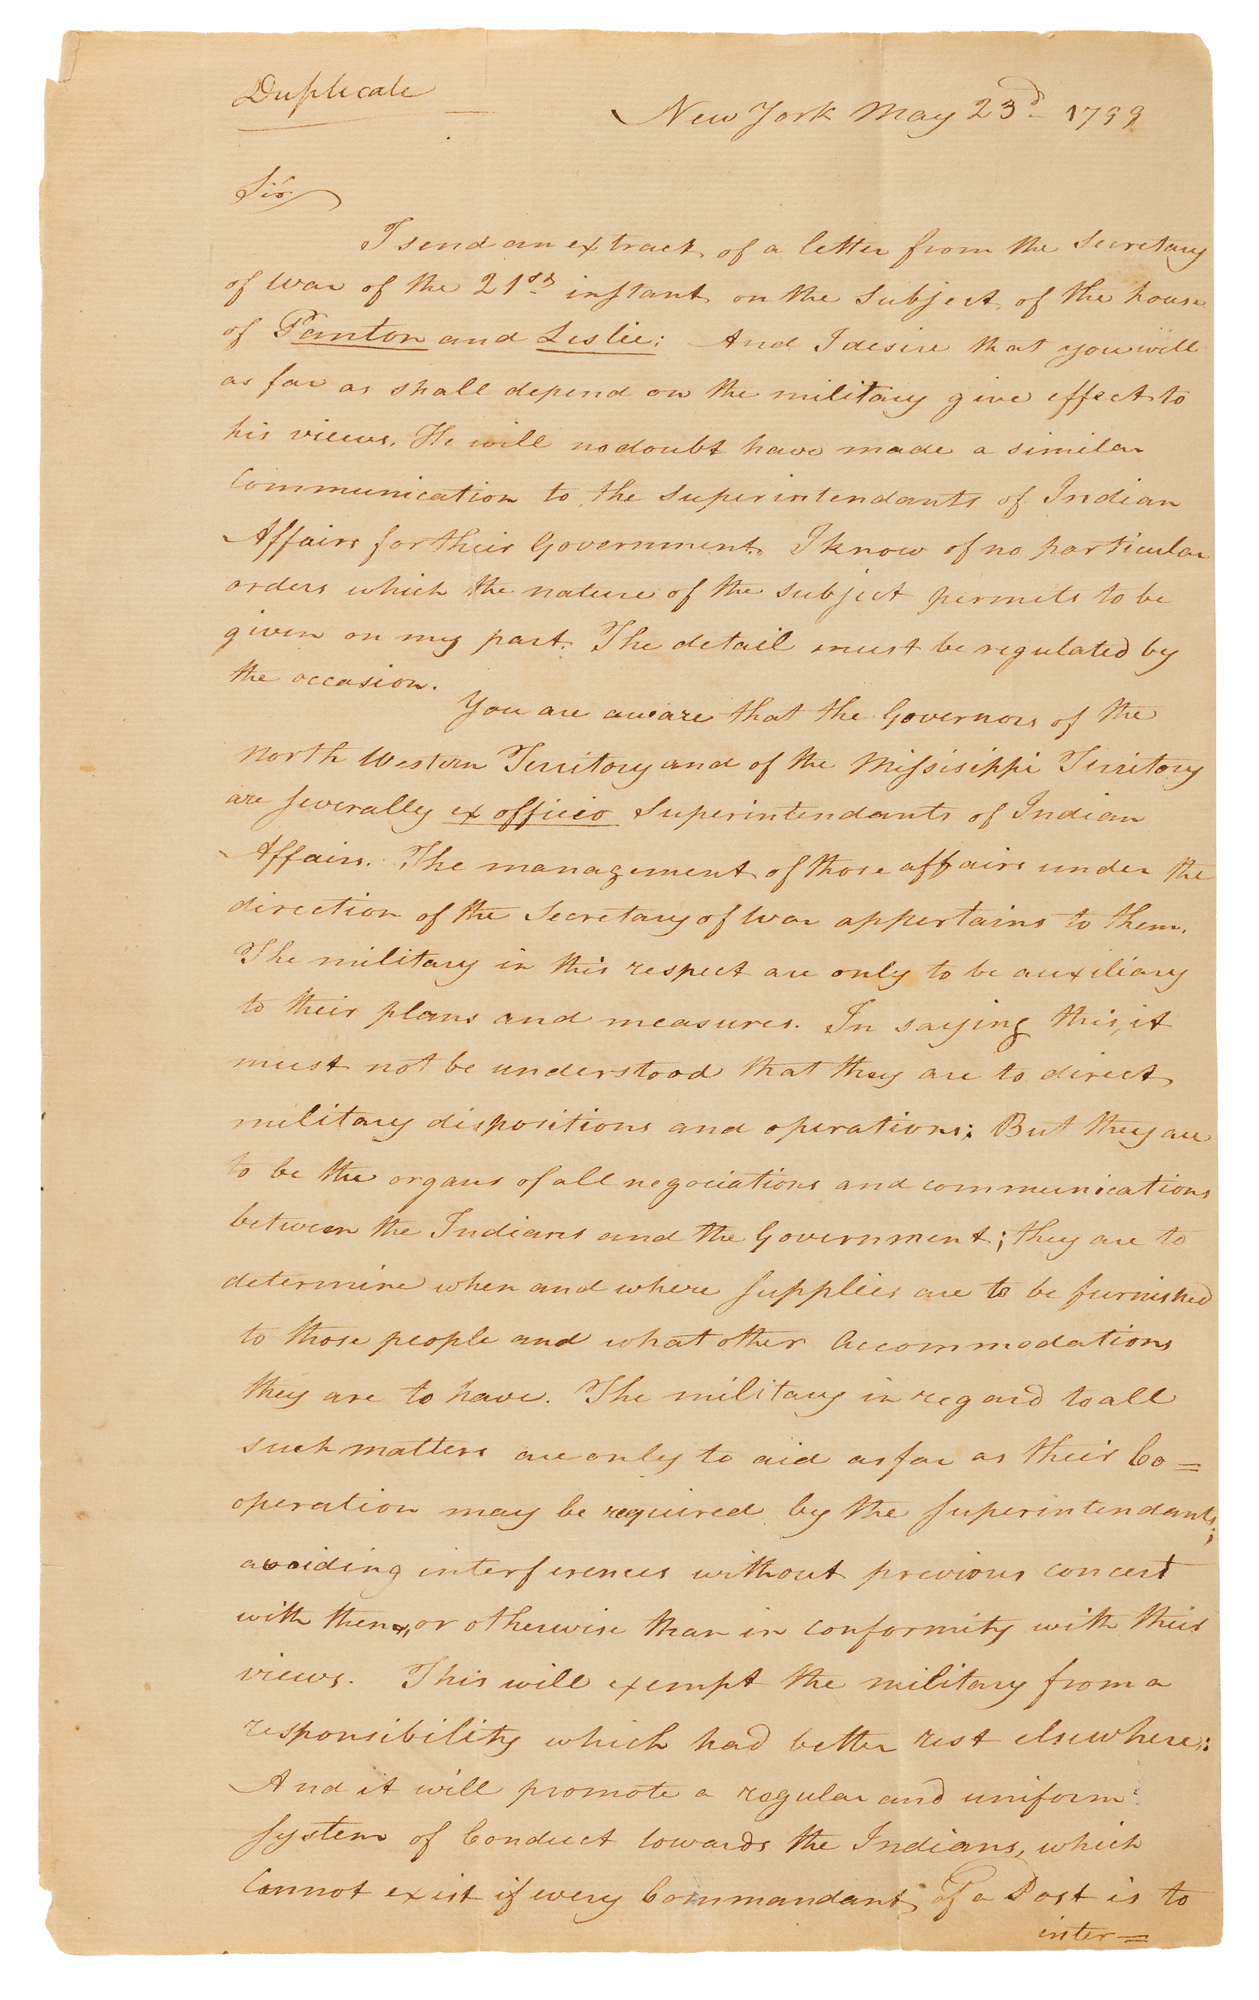 Duplicate
New York May 23d 1799
Sir
I send an extract of a letter from the Secretary
of War of the 21st instant on the subject of the house
of Panton and Leslie: And I desire that you will
as far as shall depend on the military give effect to
his views. He will no doubt have made a similar
Communication to the Superintendants of Indian
Affairs for their Government. I know of no particular
orders which the nature of the subject permits to be
given on my part. The detail must be regulated by
the occasion.
You are aware that the Governors of the
North Western Territory and of the Missisippi Territory
are severally ex officio Superintendants of Indian
Affairs. The management of those affairs under the
direction of the Secretary of War appertains to them.
The military in this respect are only to be auxiliary
to their plans and measures. In saying this, it
must not be understood that they are to direct
military dispositions and operations: But they are
to be the organs of all negociations and communications
between the Indians and the Government; they are to
determine when and where supplies are to be furnished
to those people and what other Accommodations
they are to have. The military in regard to all
such matters are only to aid as far as their Co=
operation may be required by the superintendants;
avoiding interferences without previous concert
with them, or otherwise than in conformity with their
views. This will exempt the military from a
responsibility which had better rest elsewhere:
And it will promote a regular and uniform
system of Conduct towards the Indians, which
Cannot exist if every Commandant of a Post is to
inter=